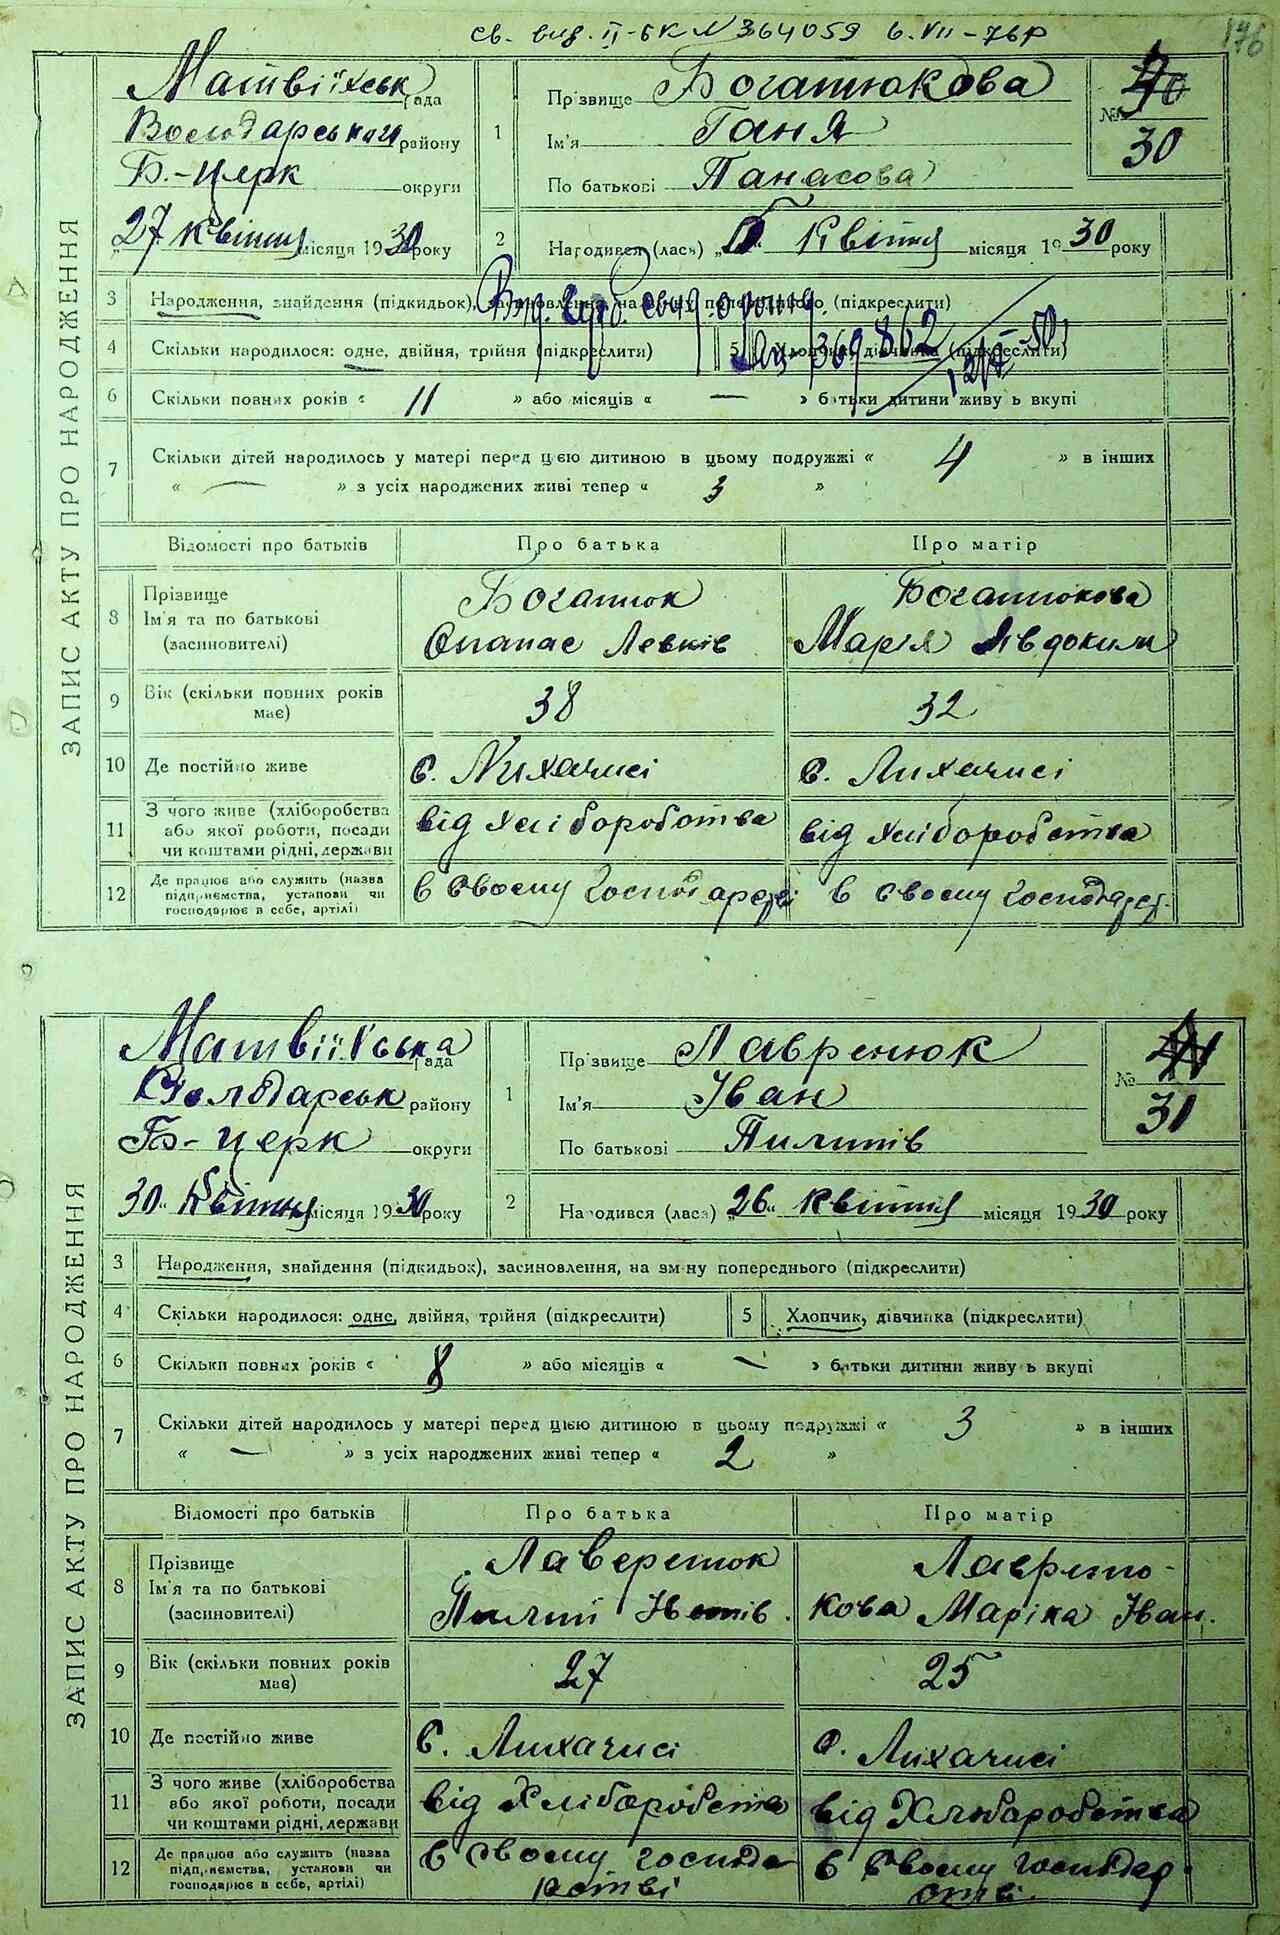 св. вид. II-БК № 364059 6. VII - 76р
176
ЗАПИС АКТУ ПРО НАРОДЖЕННЯ
Матвіїхськ рада
Володарського району
Б.-Церк округи
„27 квітня місяця 1930 року
1
Прізвище Богатюкова
Ім'я Ганя
По батькові Панасова
№ 30
2
Народився (лась) „ “ квітня місяця 1930 року
3 Народження, знайдення (підкидьок), засиновлення, на зміну попереднього (підкреслити)
4 Скільки народилося: одне, двійня, трійня (підкреслити)
5 Хлопчик, дівчинка (підкреслити)
369862
6 Скільки повних років « 11 » або місяців « — » батьки дитини живуть вкупі
7 Скільки дітей народилось у матері перед цією дитиною в цьому подружжі « 4 » в інших
« — » з усіх народжених живі тепер « 3 »
Відомості про батьків Про батька Про матір
8 Прізвище Богатюк Богатюкова
Ім'я та по батькові Опанас Левків Марія Явдоким
(засиновителі)
9 Вік (скільки повних років має) 38 32
10 Де постійно живе с. Лихачисі с. Лихачисі
11 З чого живе (хліборобства
або якої роботи, посади від хлібороботва від хлібороботва
чи коштами рідні, держави
12 Де працює або служить (назва
підприємства, установи чи в своєму господарстві в своєму господарст.
господарює в себе, артілі)
ЗАПИС АКТУ ПРО НАРОДЖЕННЯ
Матвіїхська рада
Володарськ району
Б-Церк округи
30 „ квітня місяця 1930 року
1
Прізвище Лавренюк
Ім'я Іван
По батькові Пилипів
№ 31
2
Народився (лась) „26“ квітня місяця 1930 року
3 Народження, знайдення (підкидьок), засиновлення, на зміну попереднього (підкреслити)
4 Скільки народилося: одне, двійня, трійня (підкреслити)
5 Хлопчик, дівчинка (підкреслити)
6 Скільки повних років « 8 » або місяців « — » батьки дитини живуть вкупі
7 Скільки дітей народилось у матері перед цією дитиною в цьому подружжі « 3 » в інших
« — » з усіх народжених живі тепер « 2 »
Відомості про батьків Про батька Про матір
8 Прізвище Лаверенюк Лавреню-
Ім'я та по батькові Пилип кова Маріка Іван.
(засиновителі)
9 Вік (скільки повних років має) 27 25
10 Де постійно живе с. Лихачисі с. Лихачисі
11 З чого живе (хліборобства
або якої роботи, посади від Хлібороботва від Хлібороботва
чи коштами рідні, держави
12 Де працює або служить (назва
підприємства, установи чи в своєму господа рстві в своєму господар стві.
господарює в себе, артілі)